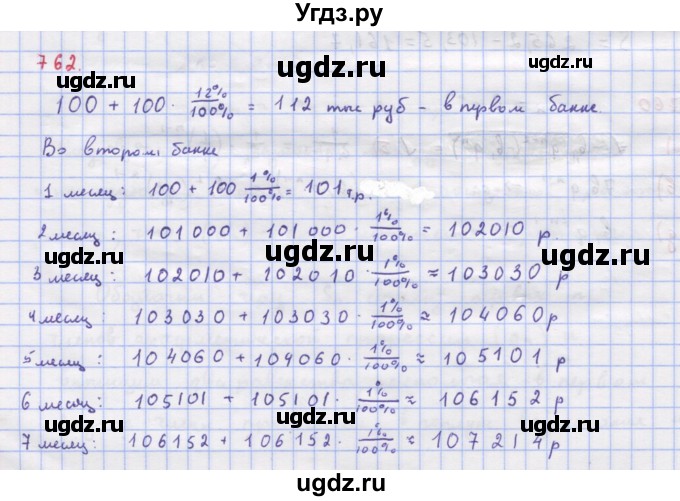 Угдз.ру
762.
ugdz.ru ugdz.ru
100 + 100 · 12%/100% = 112 тыс руб - в первом банке.
ugdz.ru ugdz.ru
Во втором банке
1 месяц: 100 + 100 1%/100% = 101 т.р.
ugdz.ru
2 месяц: 101000 + 101000 · 1%/100% = 102010 р
ugdz.ru ugdz.ru
3 месяц: 102010 + 102010 · 1%/100% ≈ 103030 р
ugdz.ru
4 месяц: 103030 + 103030 · 1%/100% ≈ 104060 р
ugdz.ru ugdz.ru
5 месяц: 104060 + 104060 · 1%/100% ≈ 105101 р
ugdz.ru
6 месяц: 105101 + 105101 · 1%/100% ≈ 106152 р
ugdz.ru ugdz.ru
7 месяц: 106152 + 106152 · 1%/100% ≈ 107214 р
ugdz.ru